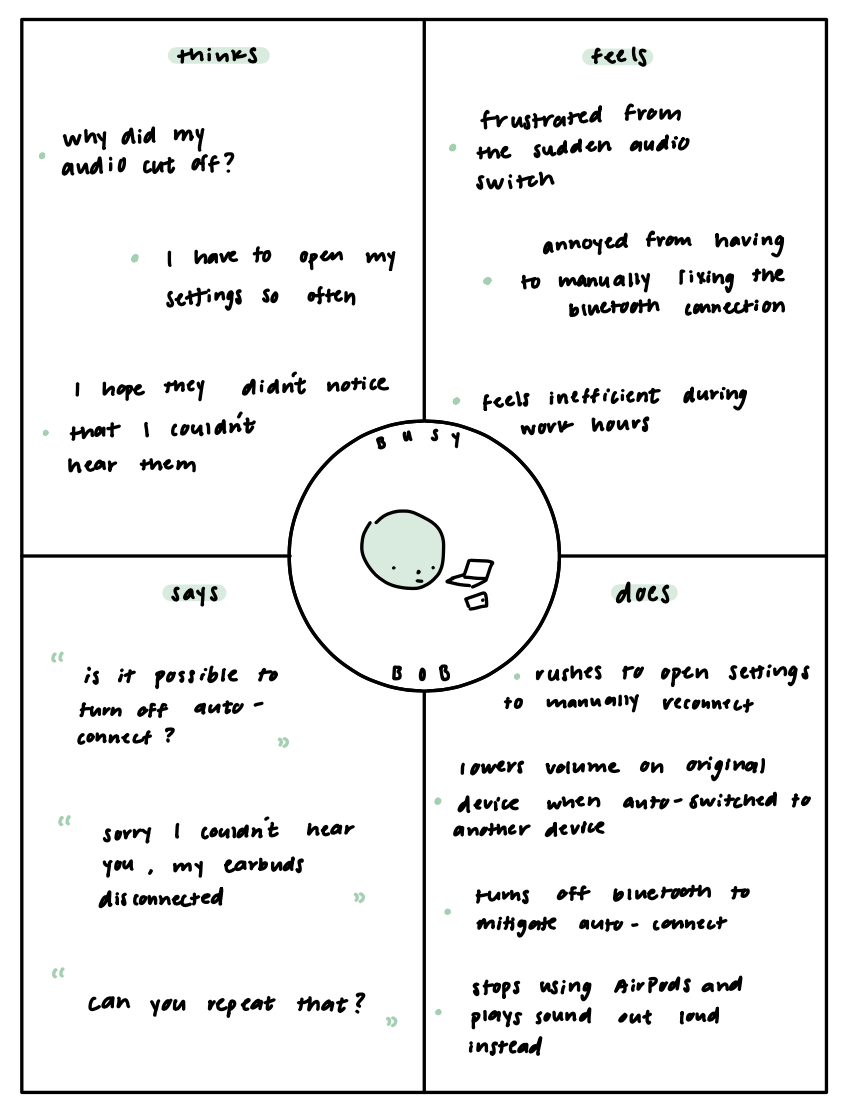 thinks
why did my
audio cut off?
I have to open my
settings so often
I hope they didn't notice
that I couldn't
hear them
feels
frustrated from
the sudden audio
switch
annoyed from having
to manually fixing the
bluetooth connection
feels inefficient during
work hours
Busy
BOB
says
“ is it possible to
turn off auto-
connect? ”
“ sorry I couldn't hear
you, my earbuds
disconnected ”
“ can you repeat that? ”
does
rushes to open settings
to manually reconnect
lowers volume on original
device when auto-switched to
another device
turns off bluetooth to
mitigate auto-connect
stops using AirPods and
plays sound out loud
instead